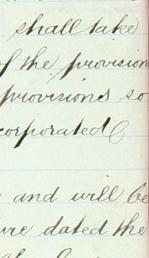 shall take
of the provision
provisions so
corporated
and will be
ure dated the